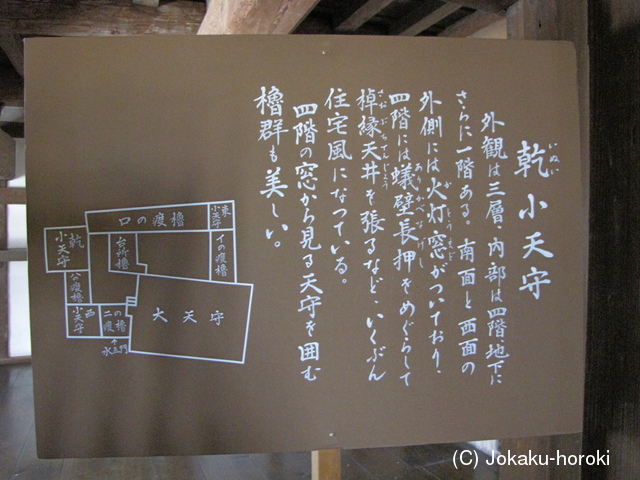 乾小天守
いぬい
外観は三層、内部は四階地下に
さらに一階ある。南面と西面の
外側には火灯窓がついており、
かとうまど
四階には蟻壁長押をめぐらして
ありかべなげし
棹縁天井を張るなど、いくぶん
さおぶちてんじょう
住宅風になっている。
四階の窓から見る天守を囲む
櫓群も美しい。
東小天守
ロの渡櫓
イの渡櫓
台所櫓
乾小天守
ハの渡櫓
西小天守
ニの渡櫓
水五門
大天守
(C) Jokaku-horoki